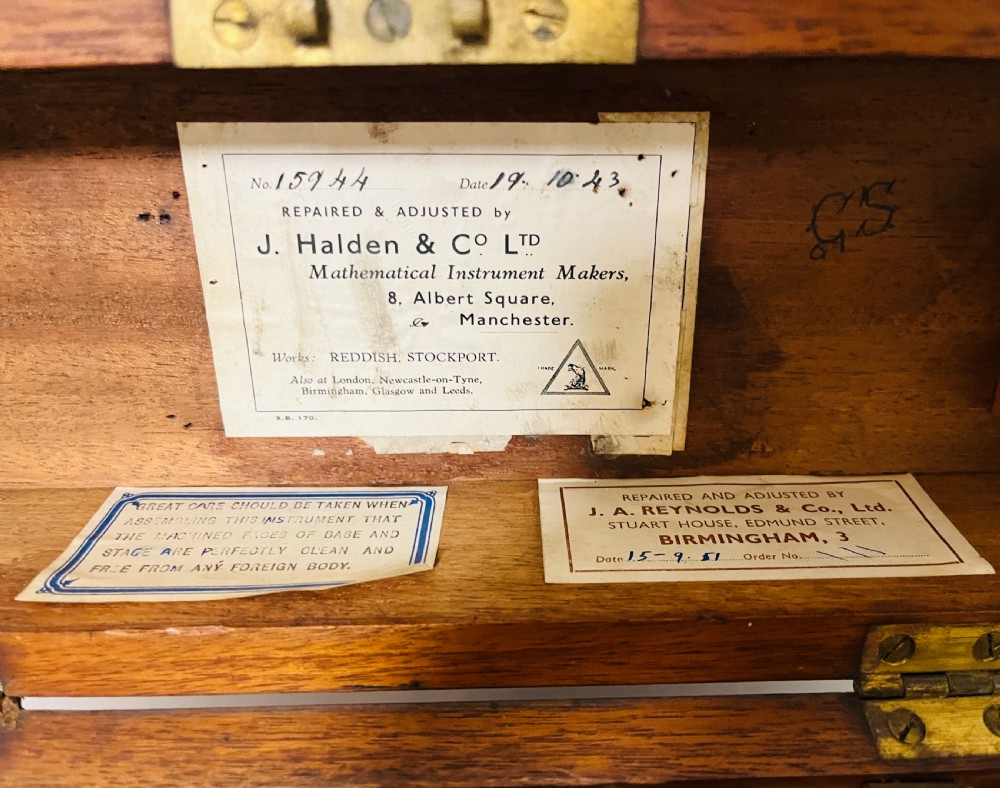 No. 15944 Date 19. 10. 43
REPAIRED & ADJUSTED by
J. Halden & Co. LTD
Mathematical Instrument Makers,
8, Albert Square,
Manchester.
Works: REDDISH, STOCKPORT.
Also at London, Newcastle-on-Tyne,
Birmingham, Glasgow and Leeds.
TRADE MARK
X.B. 170.
GS
GREAT CARE SHOULD BE TAKEN WHEN
ASSEMBLING THIS INSTRUMENT THAT
THE MACHINED FACES OF BASE AND
STAGE ARE PERFECTLY CLEAN AND
FREE FROM ANY FOREIGN BODY.
REPAIRED AND ADJUSTED BY
J. A. REYNOLDS & Co., Ltd.
STUART HOUSE, EDMUND STREET,
BIRMINGHAM, 3
Date 15-9.51 Order No.